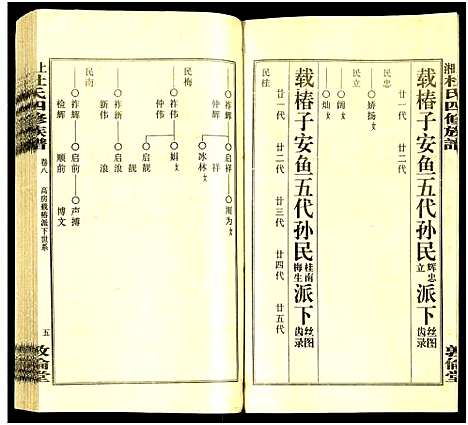 湘杜氏四修族谱
载椿子安鱼三五代孙民辉忠立派下丝图齿录
廿一代
廿二代
民忠
娇扬女
民立
阔女
灿女
载椿子安鱼三五代孙民桂南梅生派下丝图齿录
廿一代
廿二代
廿三代
廿四代
廿五代
民桂
祚辉
启祥
周为女
仲辉
祥
冰林女
民梅
祚伟
启靓
娟女
仲伟
靓
民南
祚新
启浪
新伟
浪
祚辉
启前
声搏
检辉
顺前
博文
上杜氏四修族谱
卷八
高房载椿派下世系
五
敦伦堂
敦伦堂